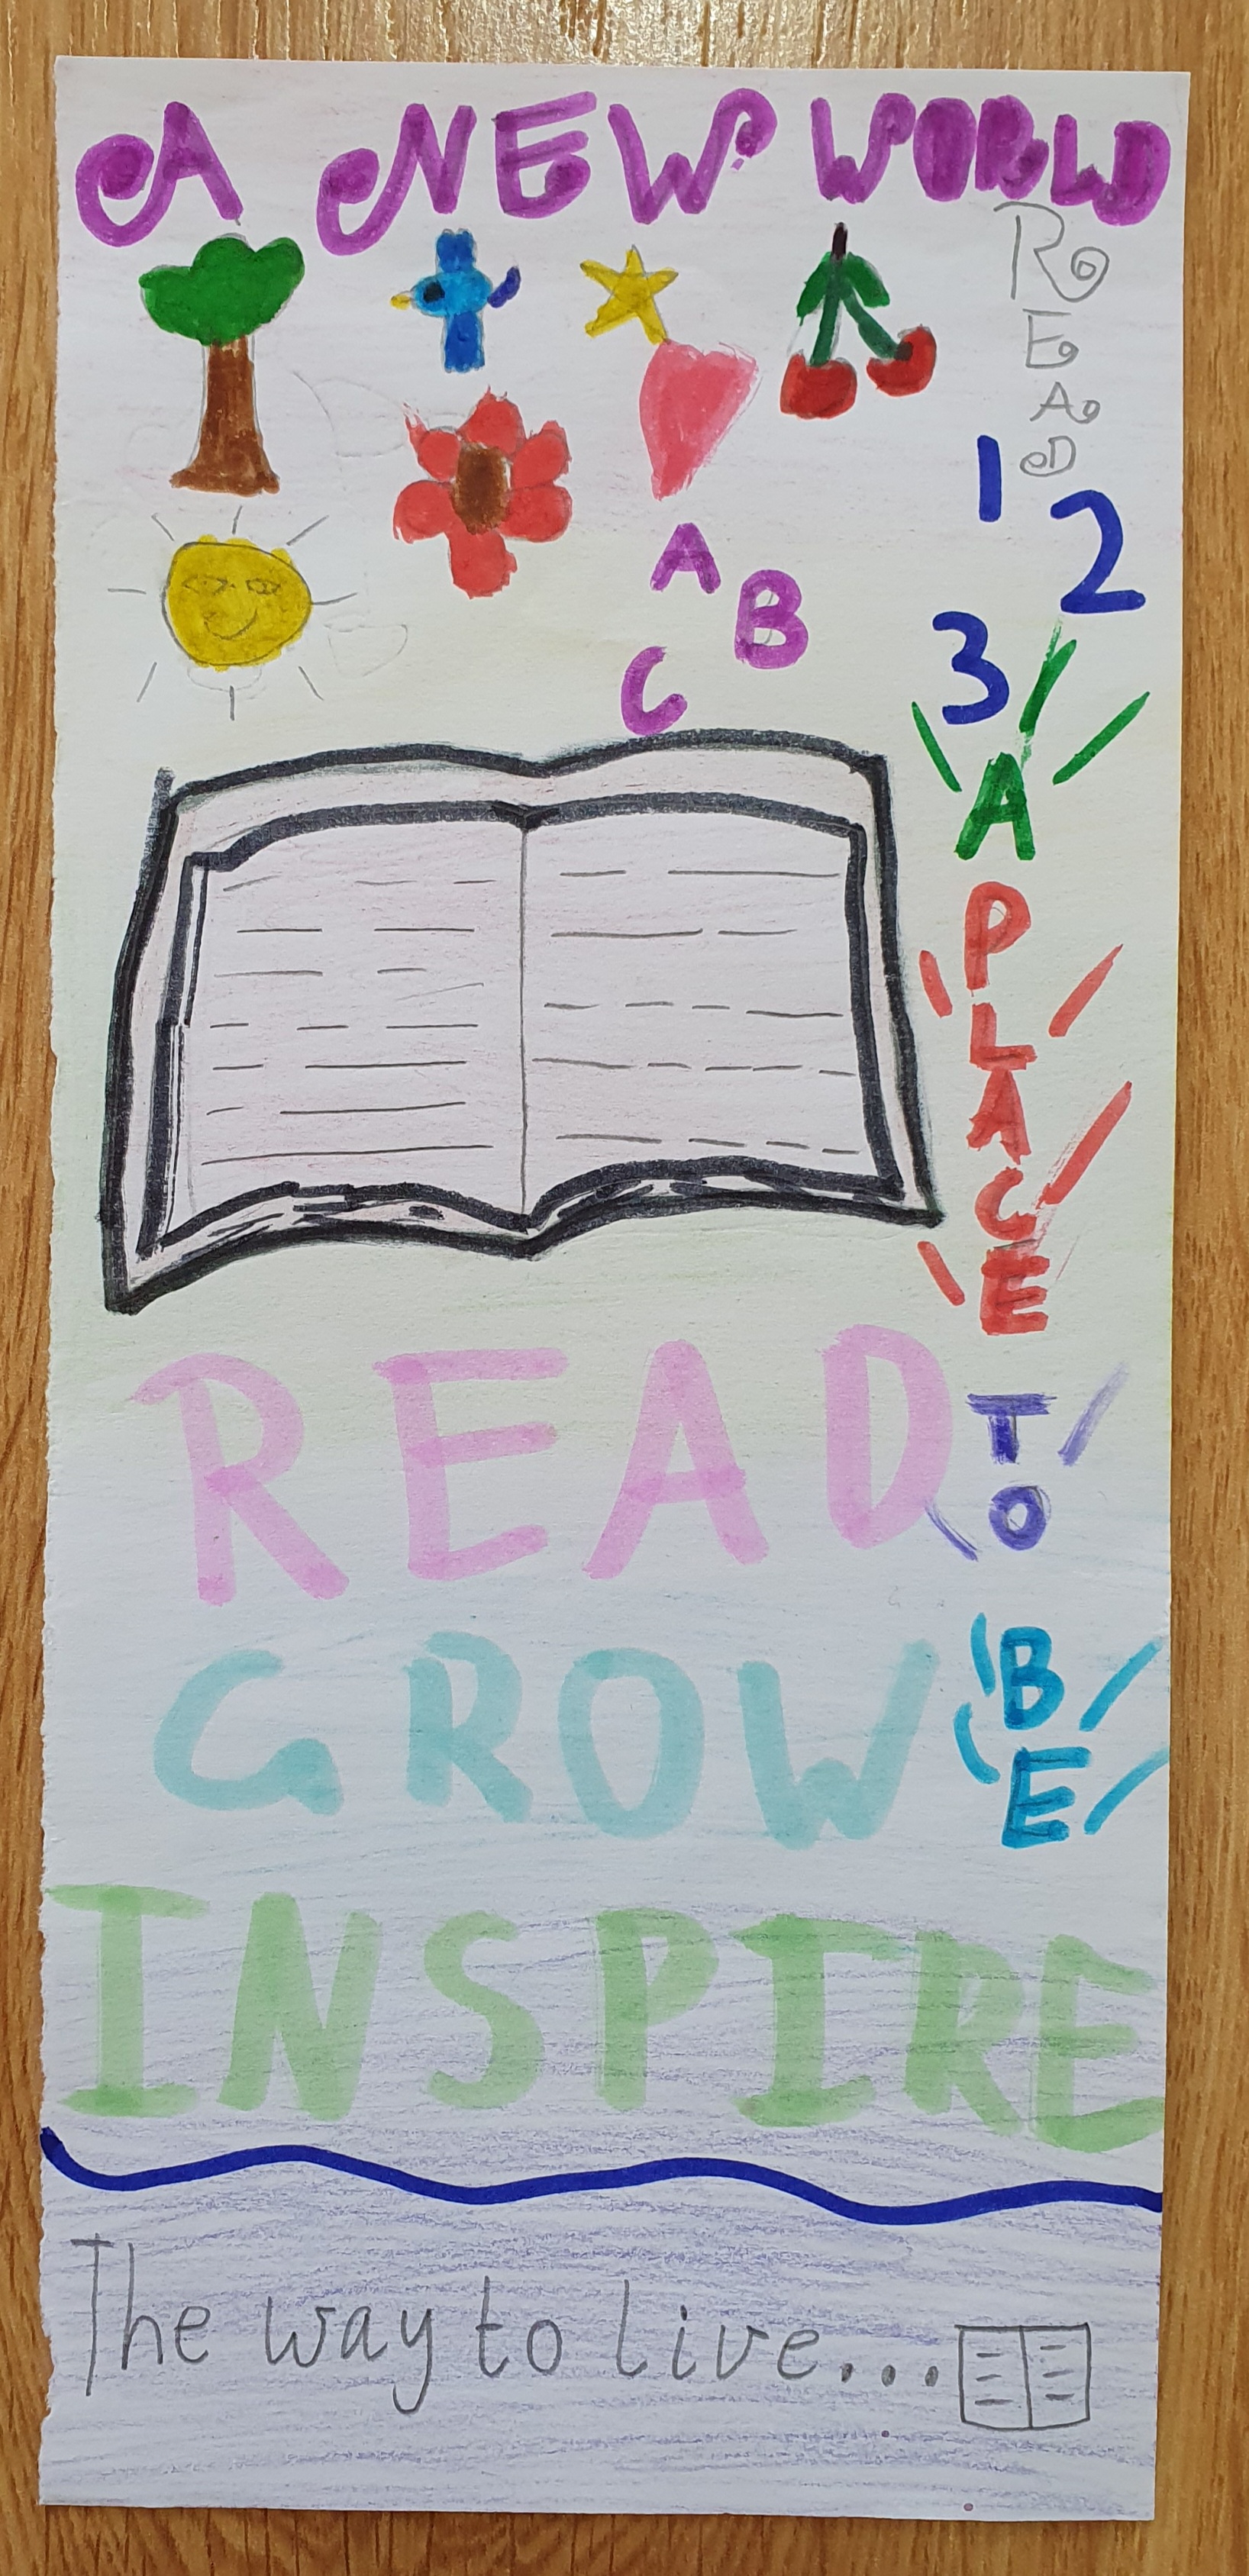 A NEW WORLD
READ
1 2 3
A B C
A PLACE TO BE
READ
GROW
INSPIRE
The way to live...